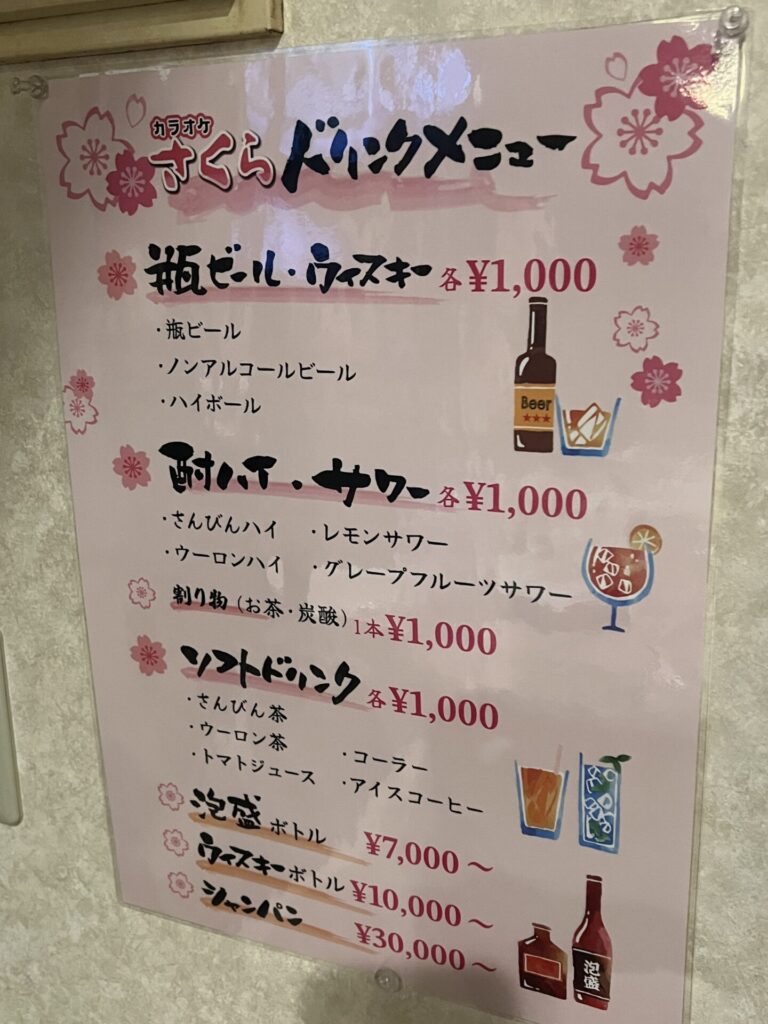 カラオケ
さくら ドリンクメニュー
瓶ビール・ウィスキー 各 ¥1,000
・瓶ビール
・ノンアルコールビール
・ハイボール
Beer
酎ハイ・サワー 各 ¥1,000
・さんぴんハイ ・レモンサワー
・ウーロンハイ ・グレープフルーツサワー
割り物（お茶・炭酸）1本 ¥1,000
ソフトドリンク 各 ¥1,000
・さんぴん茶
・ウーロン茶 ・コーラー
・トマトジュース ・アイスコーヒー
泡盛 ボトル ¥7,000～
ウィスキーボトル ¥10,000～
シャンパン ¥30,000～
泡盛